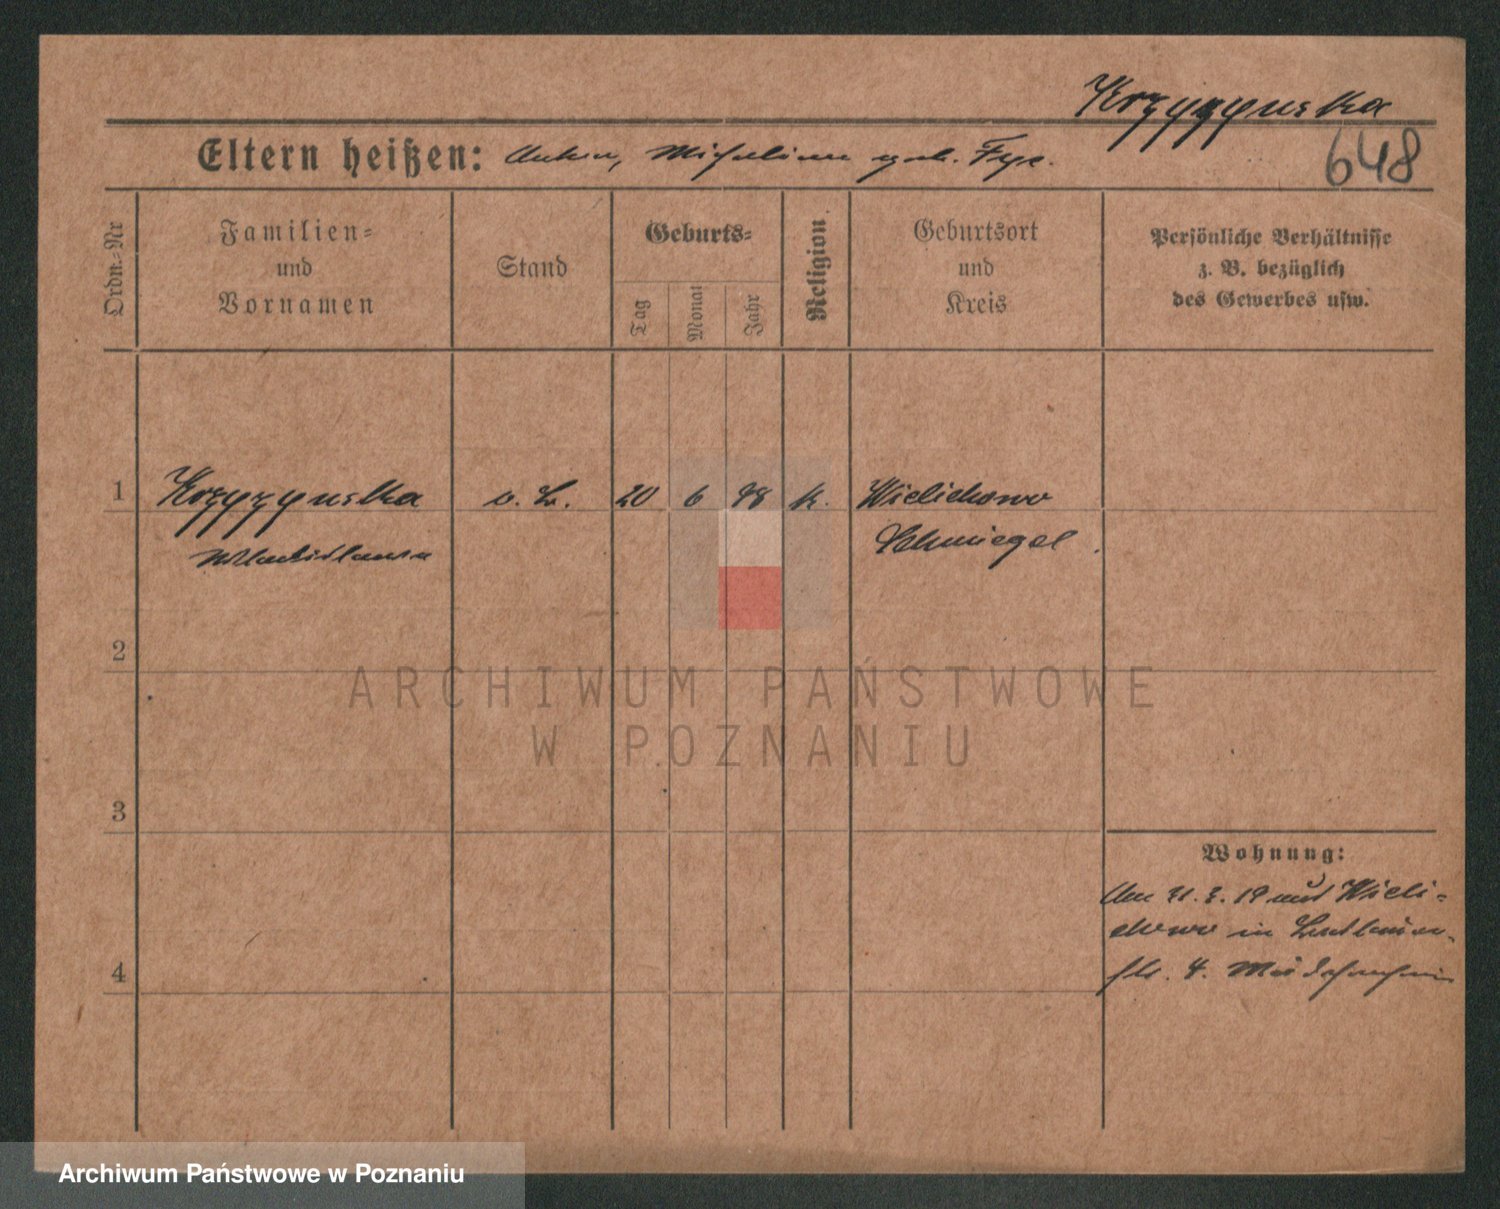 Krzyzynska
648
Eltern heißen: Anton, Michalina geb. Frye.
Ordn.-Nr
Familien-
und
Vornamen
Stand
Geburts-
Tag
Monat
Jahr
Religion.
Geburtsort
und
Kreis
Persönliche Verhältnisse
z. B. bezüglich
des Gewerbes usw.
1
Krzyzynska
Wladislawa
o. B.
20
6
98
k.
Wielichowo
Schmiegel.
2
3
4
Wohnung:
Am 31. 3. 19 aus Wieli-
chowo in
str. 4.
ARCHIWUM PAŃSTWOWE
W POZNANIU
Archiwum Państwowe w Poznaniu